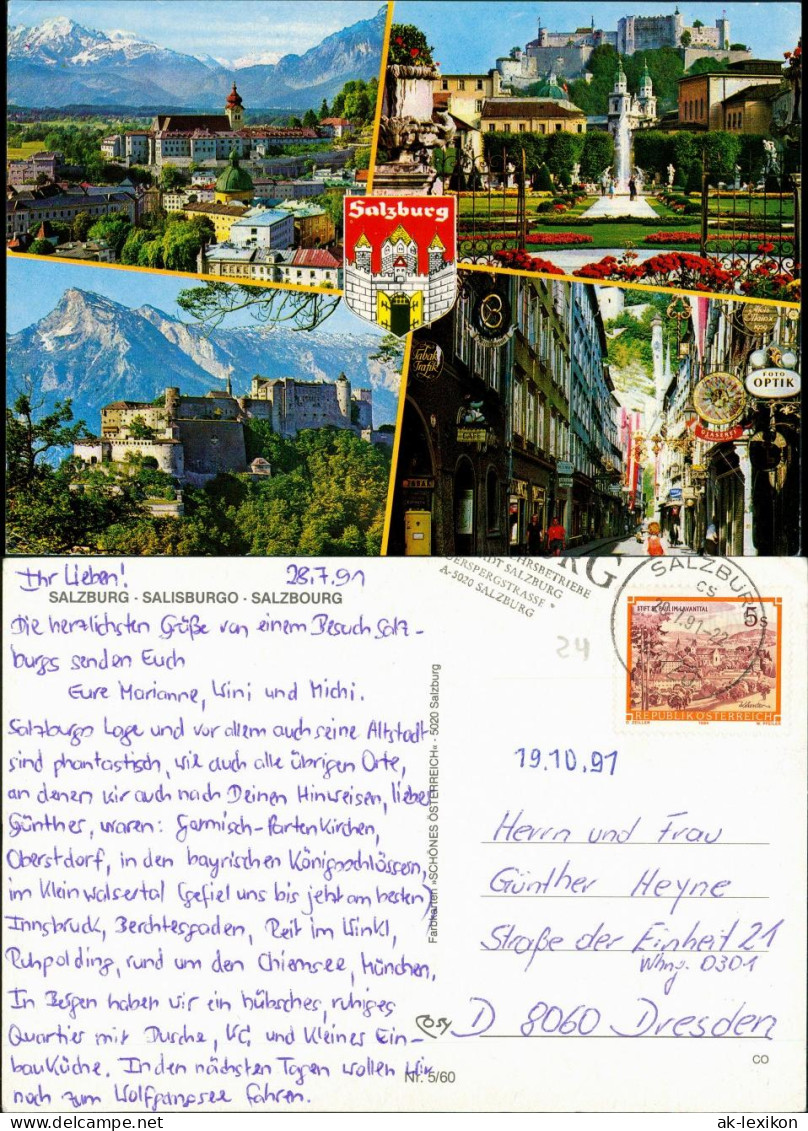 Salzburg
Tabak
Trafik
FOTO
OPTIK
Ihr Lieben! 28.7.91
SALZBURG · SALISBURGO · SALZBOURG
Die herzlichsten Grüße von einem Besuch Salz-
burgs senden Euch
Eure Marianne, Wini und Michi.
Salzburgs Lage und vor allem auch seine Altstadt
sind phantastisch, wie auch alle übrigen Orte,
an denen wir auch nach Deinen Hinweisen, lieber
Günther, waren: Garmisch-Partenkirchen,
Oberstdorf, in den bayrischen Königsschlössern,
im Kleinwalsertal (gefiel uns bis jetzt am besten)
Innsbruck, Berchtesgaden, Reit im Winkl,
Ruhpolding, rund um den Chiemsee, München,
In Bergen haben wir ein hübsches, ruhiges
Quartier mit Dusche, WC, und kleines Ein-
bauküche. In den nächsten Tagen wollen wir
noch zum Wolfgangsee fahren.
Farbkarten »SCHÖNES ÖSTERREICH« · 5020 Salzburg
Nr. 5/60
HRSBETRIEBE
DT SALZBURG
ERSPERGSTRASSE
A-5020 SALZBURG
SALZBURG
CS
7.91-22
STIFT ST. PAUL IM LAVANTTAL
5s
REPUBLIK ÖSTERREICH
24
19.10.91
Herrn und Frau
Günther Heyne
Straße der Einheit 21
Whng. 0301
D 8060 Dresden
CO
ak-lexikon